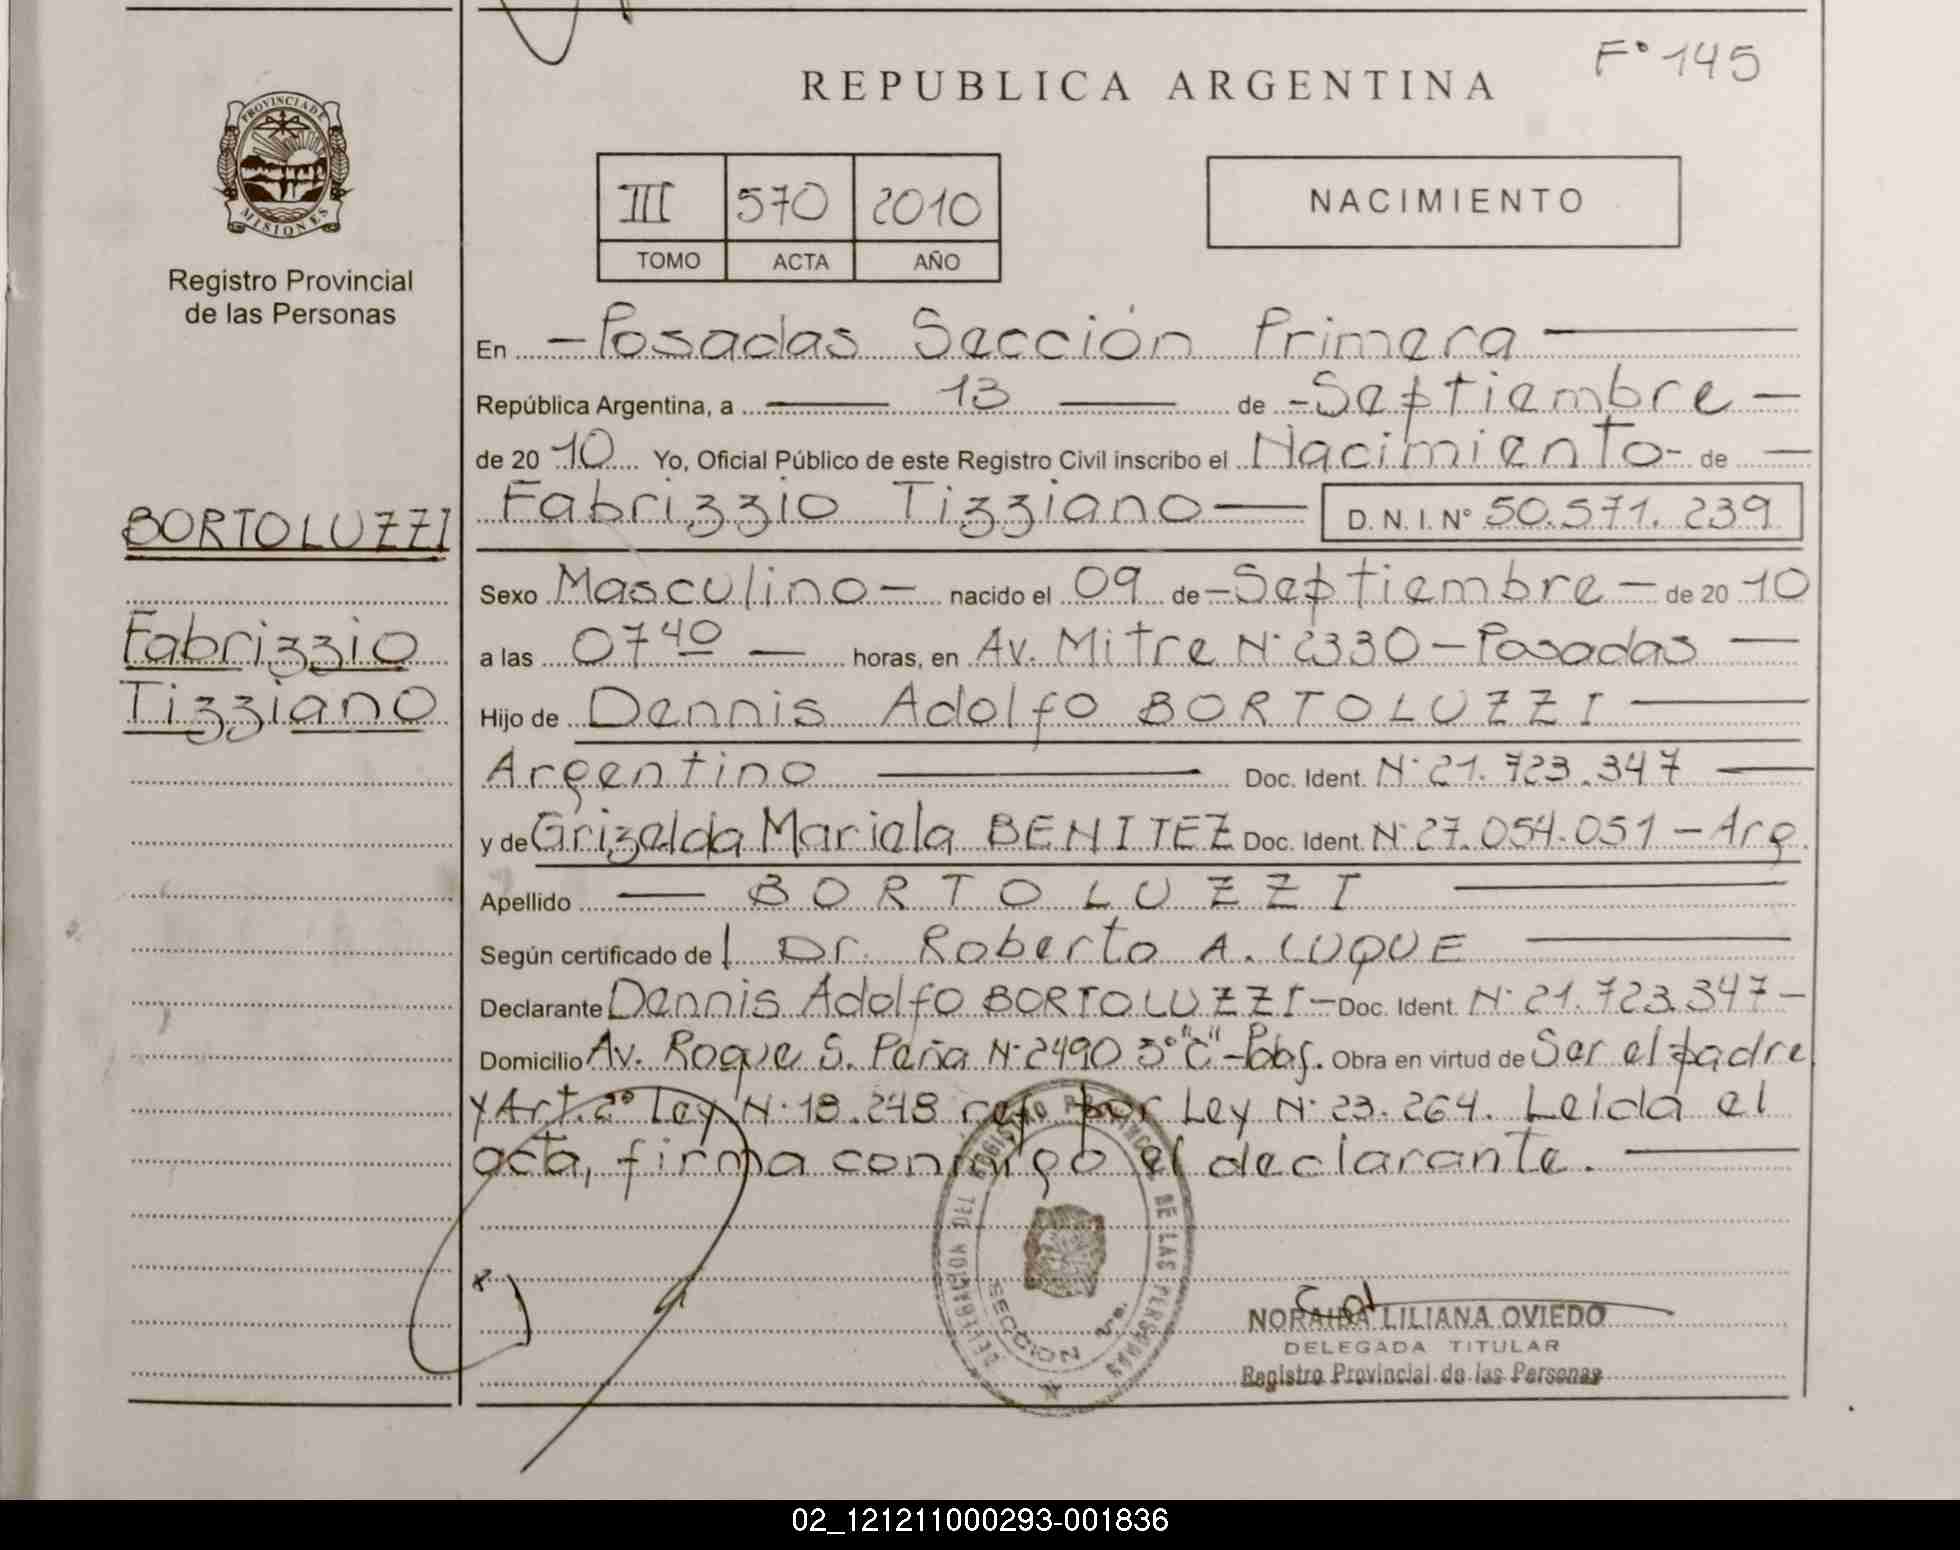 F° 145
REPUBLICA ARGENTINA
PROVINCIA DE
MISIONES
Registro Provincial
de las Personas
III 570 2010
TOMO ACTA AÑO
NACIMIENTO
En - Posadas Sección Primera
República Argentina, a 13 de - Septiembre -
de 20 10 Yo, Oficial Público de este Registro Civil inscribo el Nacimiento - de
Fabrizzio Tizziano D.N.I. N° 50.571.239
BORTOLUZZI
Fabrizzio
Tizziano
Sexo Masculino - nacido el 09 de - Septiembre - de 20 10
a las 07 40 horas, en Av. Mitre N° 2330 - Posadas
Hijo de Dennis Adolfo BORTOLUZZI
Argentino Doc. Ident. N° 21.723.347
y de Grizelda Mariela BENITEZ Doc. Ident. N° 27.054.051 - Arg.
Apellido BORTOLUZZI
Según certificado de l Dr. Roberto A. LUQUE
Declarante Dennis Adolfo BORTOLUZZI - Doc. Ident. N° 21.723.347 -
Domicilio Av. Roque S. Peña N° 2490 3° "C" - Obra en virtud de Ser el padre
y Art. 2° Ley N° 18.248 por Ley N° 23.264. Leida el
acta, firma conmigo el declarante.
REGISTRO PROVINCIAL DE LAS PERSONAS
DELEGACION
SECCION 1ra.
NORAIDA LILIANA OVIEDO
DELEGADA TITULAR
Registro Provincial de las Personas
02_121211000293-001836